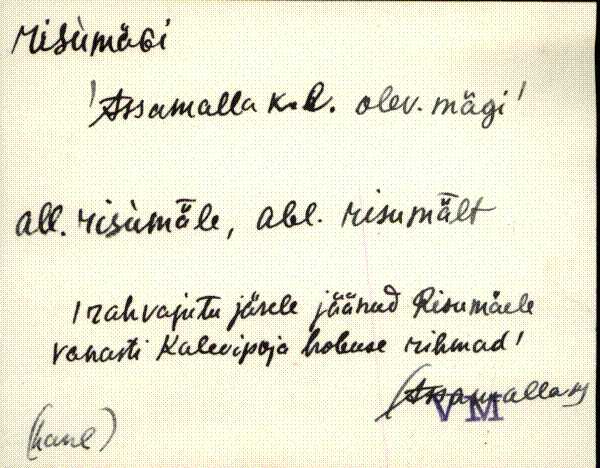 risùmäGi
'Assamalla k.l. olev. mägi'
all. risùmǟle, abl. risumǟlt
'rahvajutu järele jäänud Risumäele
vanasti Kalevipoja hobuse rihmad'
(Assamallas)
VM
(hane)